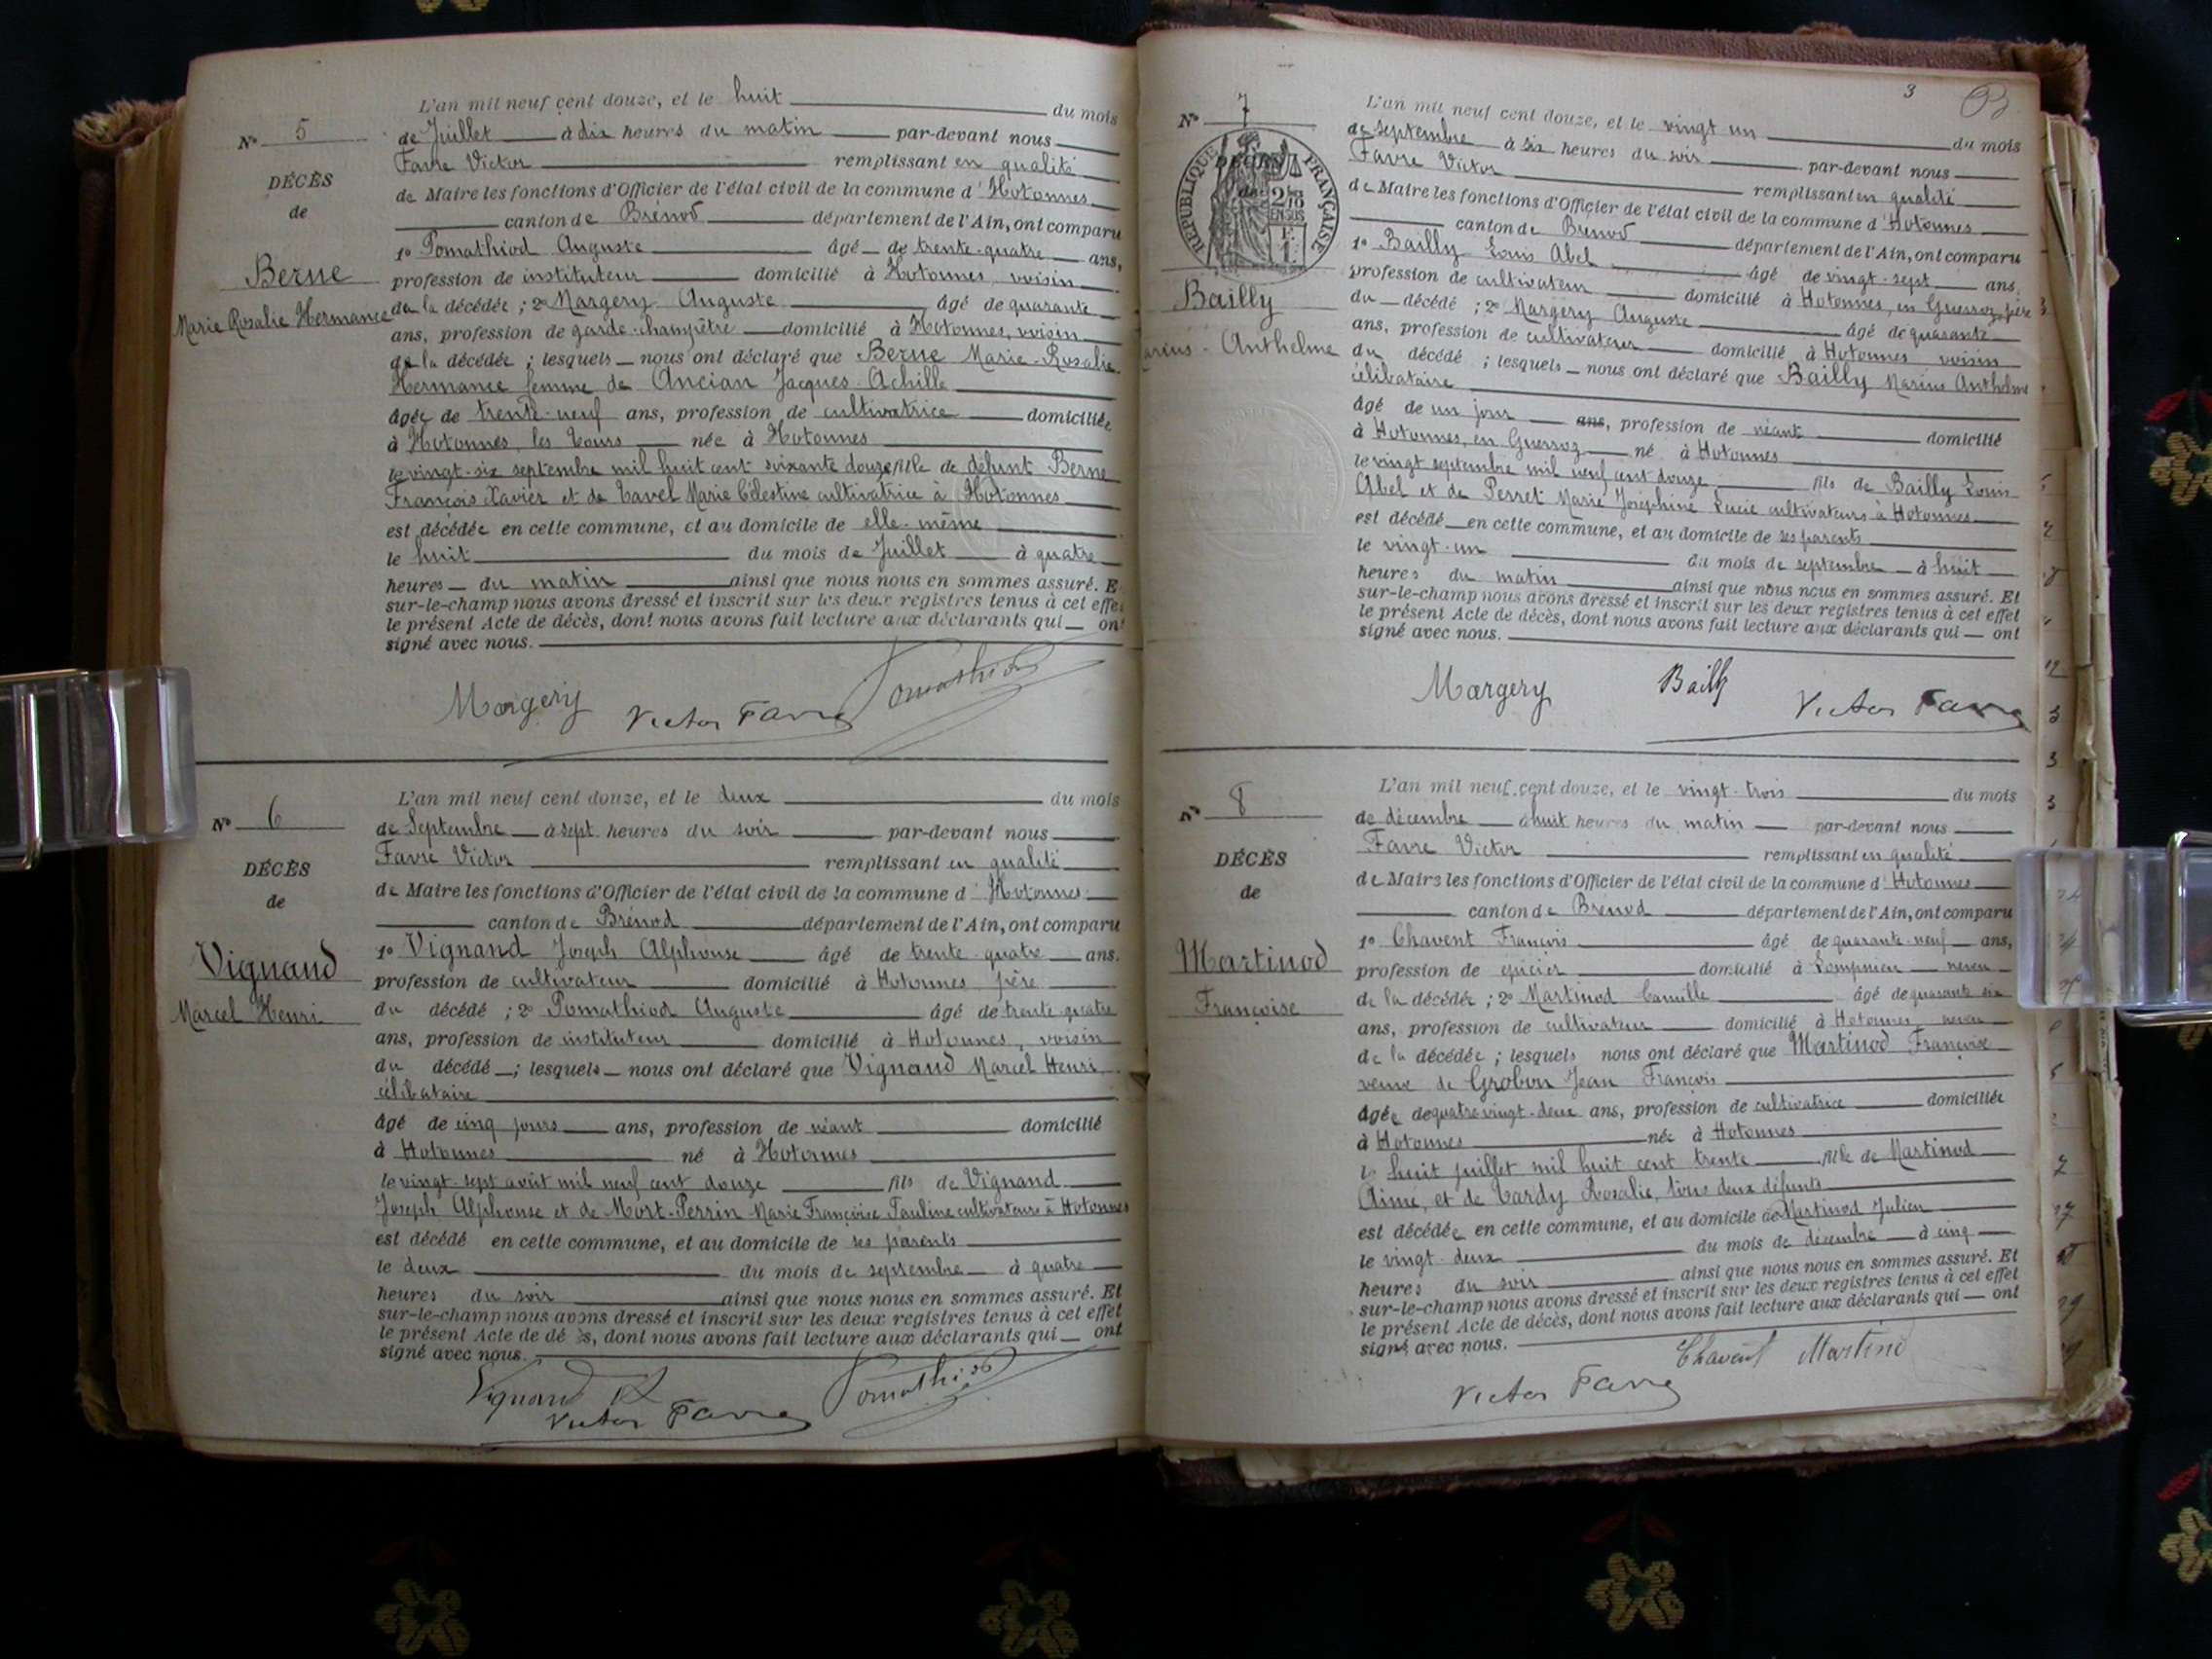 L'an mil neuf cent douze, et le huit du mois
N° 5
de Juillet à dix heures du matin par-devant nous
Favre Victor remplissant en qualité
DÉCÈS
de Maire les fonctions d'Officier de l'état civil de la commune d'Hotonnes
de
canton de Brénod département de l'Ain, ont comparu
1° Pomathiod Auguste âgé de trente-quatre ans,
Berne
profession de instituteur domicilié à Hotonnes, voisin
Marie Rosalie Hermance
de la décédée ; 2° Margery Auguste âgé de quarante
ans, profession de garde-champêtre domicilié à Hotonnes, voisin
de la décédée ; lesquels nous ont déclaré que Berne Marie-Rosalie
Hermance femme de Ancian Jacques-Achille
âgée de trente-neuf ans, profession de cultivatrice domiciliée
à Hotonnes, les née à Hotonnes
le vingt-six septembre mil huit cent soixante douze fille de défunt Berne
François Xavier et de Tavel Marie Célestine cultivatrice à Hotonnes
est décédée en cette commune, et au domicile de elle-même
le huit du mois de Juillet à quatre
heures du matin ainsi que nous nous en sommes assuré. E
sur-le-champ nous avons dressé et inscrit sur les deux registres tenus à cet effet
le présent Acte de décès, dont nous avons fait lecture aux déclarants qui ont
signé avec nous.
Margery Victor Favre Pomathiod
L'an mil neuf cent douze, et le deux du mois
N° 6
de Septembre à sept heures du soir par-devant nous
Favre Victor remplissant en qualité
DÉCÈS
de Maire les fonctions d'Officier de l'état civil de la commune d'Hotonnes
de
canton de Brénod département de l'Ain, ont comparu
1° Vignand Joseph Alphonse âgé de trente-quatre ans.
Vignand
profession de cultivateur domicilié à Hotonnes père
Marcel Henri
du décédé ; 2° Pomathiod Auguste âgé de trente-quatre
ans, profession de instituteur domicilié à Hotonnes, voisin
du décédé ; lesquels nous ont déclaré que Vignand Marcel Henri
célibataire
âgé de cinq jours ans, profession de néant domicilié
à Hotonnes né à Hotonnes
le vingt-sept août mil neuf cent douze fils de Vignand
Joseph Alphonse et de Mort-Perrin Marie Françoise Pauline cultivateurs à Hotonnes
est décédé en cette commune, et au domicile de ses parents
le deux du mois de septembre à quatre
heures du soir ainsi que nous nous en sommes assuré. Et
sur-le-champ nous avons dressé et inscrit sur les deux registres tenus à cet effet
le présent Acte de décès, dont nous avons fait lecture aux déclarants qui ont
signé avec nous.
Vignand Pomathiod
Victor Favre
3
L'an mil neuf cent douze, et le vingt un du mois
N° 7
de septembre à six heures du soir par-devant nous
RÉPUBLIQUE FRANÇAISE
Favre Victor remplissant en qualité
de Maire les fonctions d'Officier de l'état civil de la commune d'Hotonnes
canton de Brénod département de l'Ain, ont comparu
1° Bailly Louis Abel âgé de vingt-sept ans
Bailly
profession de cultivateur domicilié à Hotonnes, en Guerroz, père
du décédé ; 2° Margery Auguste âgé de quarante
arius-Anthelme
ans, profession de cultivateur domicilié à Hotonnes voisin
du décédé ; lesquels nous ont déclaré que Bailly Marius Anthelme
célibataire
âgé de un jour ans, profession de néant domicilié
à Hotonnes, en Guerroz né à Hotonnes
le vingt septembre mil neuf cent douze fils de Bailly Louis
Abel et de Perret Marie Joséphine Lucie cultivateurs à Hotonnes
est décédé en cette commune, et au domicile de ses parents
le vingt-un du mois de septembre à huit
heures du matin ainsi que nous nous en sommes assuré. Et
sur-le-champ nous avons dressé et inscrit sur les deux registres tenus à cet effet
le présent Acte de décès, dont nous avons fait lecture aux déclarants qui ont
signé avec nous.
Margery Bailly Victor Favre
L'an mil neuf cent douze, et le vingt-trois du mois
N° 8
de décembre à huit heures du matin par-devant nous
Favre Victor remplissant en qualité
DÉCÈS
de Maire les fonctions d'Officier de l'état civil de la commune d'Hotonnes
de
canton de Brénod département de l'Ain, ont comparu
1° Chavent François âgé de quarante-neuf ans,
Martinod
profession de épicier domicilié à Lompnieu neveu
Françoise
de la décédée ; 2° Martinod Camille âgé de quarante six
ans, profession de cultivateur domicilié à Hotonnes neveu
de la décédée ; lesquels nous ont déclaré que Martinod Françoise
veuve de Grobon Jean François
âgée de quatre vingt-deux ans, profession de cultivatrice domiciliée
à Hotonnes née à Hotonnes
le huit juillet mil huit cent trente fille de Martinod
Aimé, et de Tardy Rosalie, tous deux défunts
est décédée en cette commune, et au domicile de Martinod Julien
le vingt-deux du mois de décembre à cinq
heures du soir ainsi que nous nous en sommes assuré. Et
sur-le-champ nous avons dressé et inscrit sur les deux registres tenus à cet effet
le présent Acte de décès, dont nous avons fait lecture aux déclarants qui ont
signé avec nous.
Chavent Martino
Victor Favre